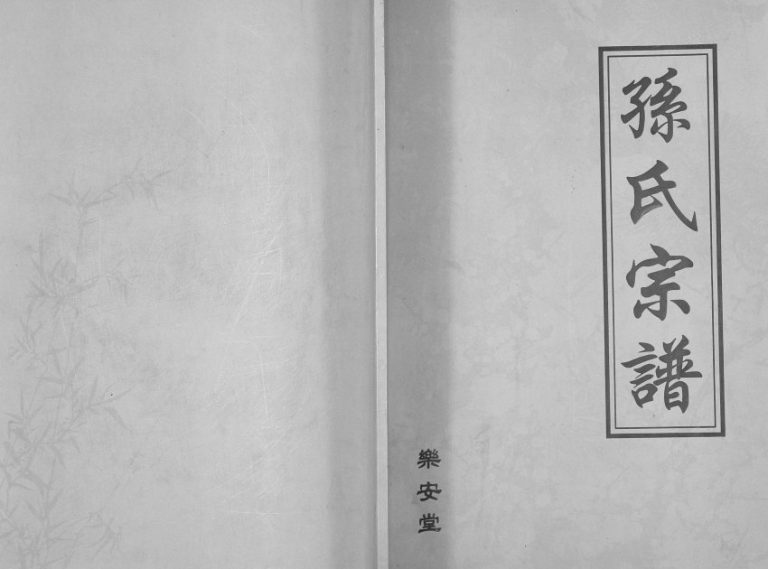 孫氏宗譜
樂安堂